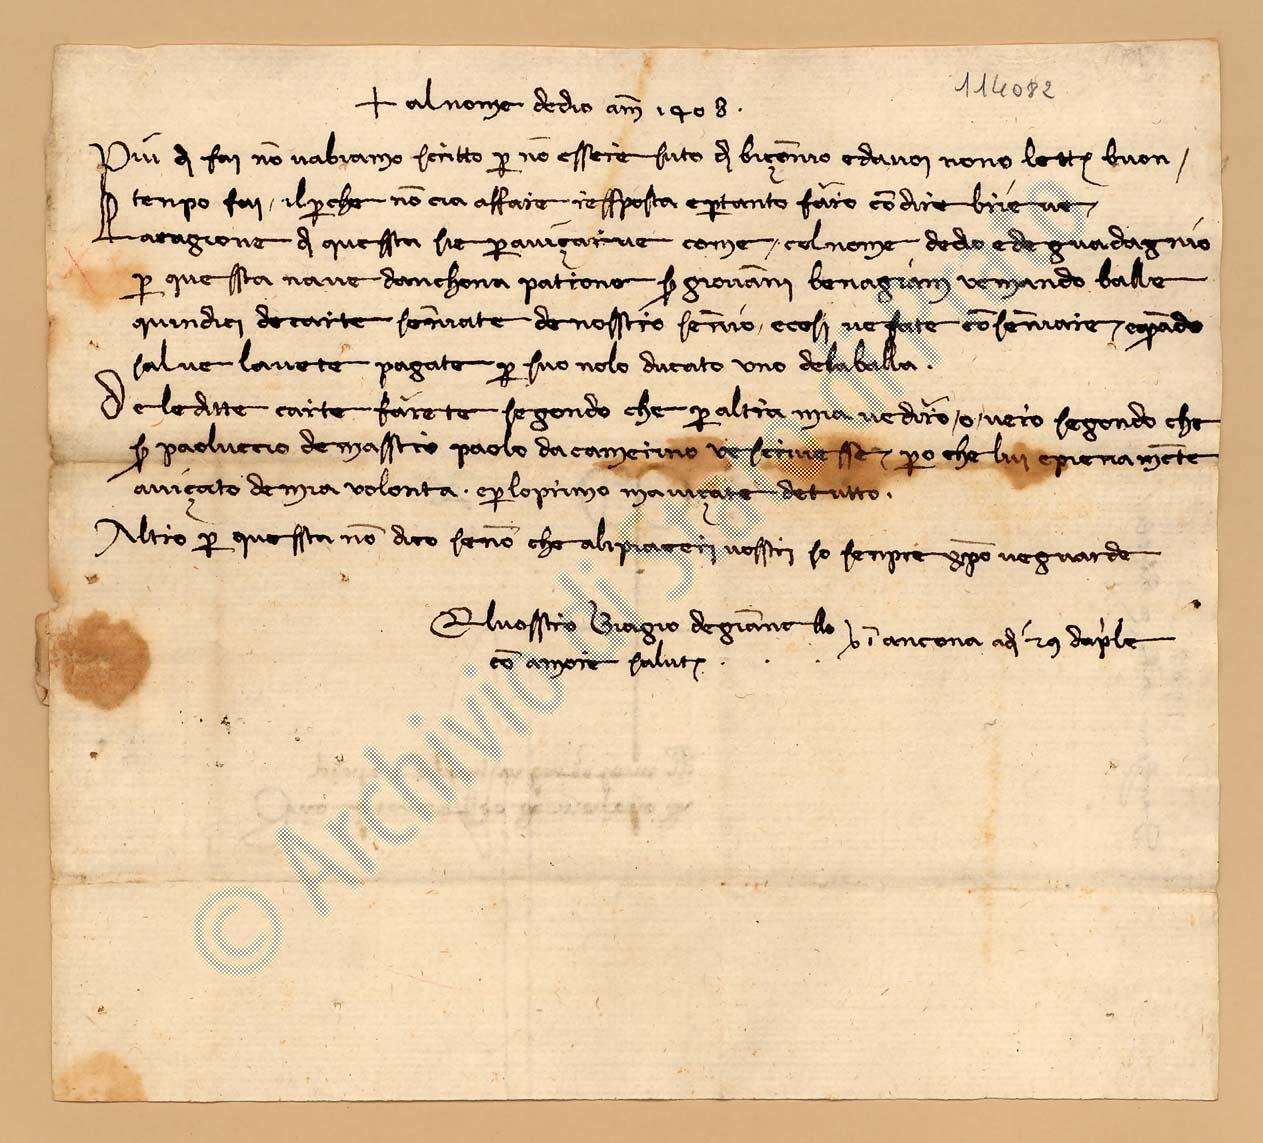 114082
+ al nome de dio am̄ 1408 .
Piu dì fai nō v abiamo scritto p nō essere suto dì biçōnio e da voi nono lettr̄ buon /
tenpo fai , il p che nō ci a affare resfposta e p tanto farò cō dire brieve ,
La cagione dì quessta sie p aviçarve come , col nome de dio e de guadagnio
p quessta nave d anchona patrone s giovāni benagiām ve mando balle
quindici de carte sengnate de nosstro sengnio , e cosi ve fate cōsengnare , e quādo
salve l avete pagate p suo nolo ducato uno de la balla .
De le ditte carte farete segondo che p altra mia ve dirò , o , vero segondo che
s paoluccio de masstro paolo da camerino ve scrivesse , p o che lui e pienamēte
aviçato de mia volonta . e p lo primo m aviçate de tutto .
Altro p quessta nō dico senō che a li piaceri vosstri so senpre xp̄o ve guarde
El vosstro Biagio de giāne llo
cō amore salutr̄ .
i ancona a dì 29 d ap̄le
© Archivio di Stato di Prato